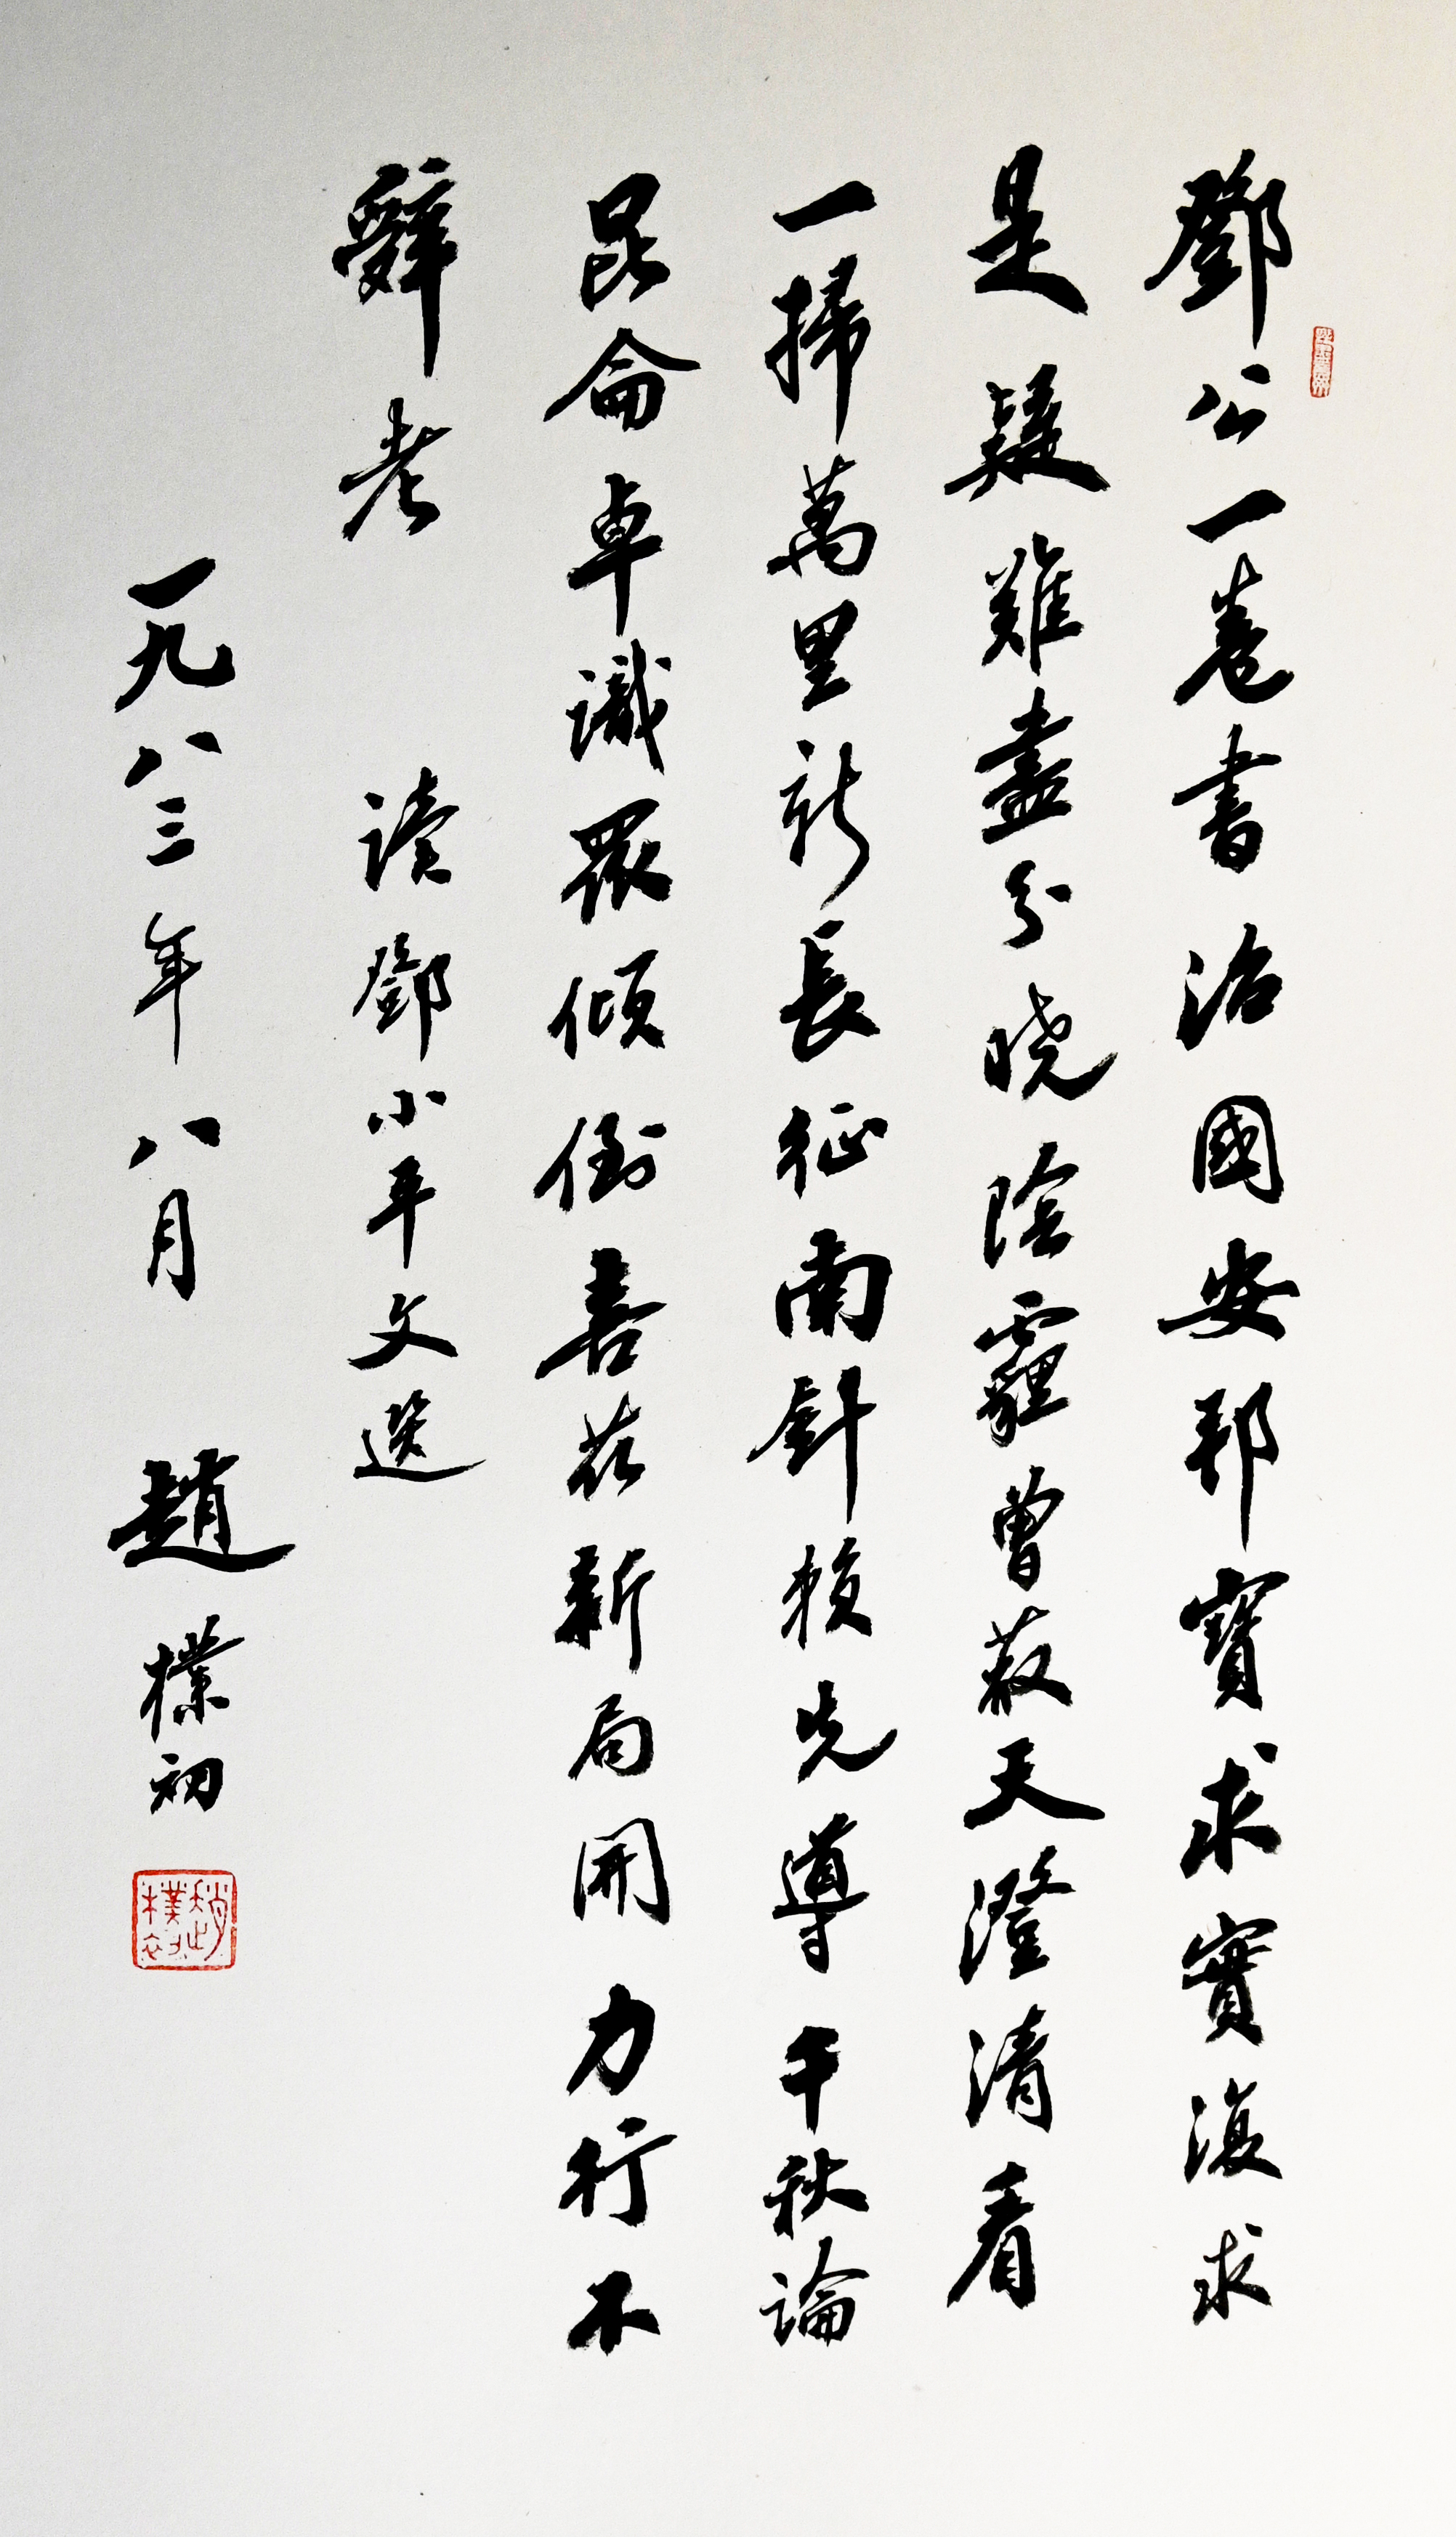 鄧公一卷書治國安邦寶求實復求
是疑難盡分曉陰霾曾蔽天澄清看
一掃萬里新長征南針賴先導千秋論
昆侖卓識眾傾倒喜花新局開力行不
辭老
读鄧小平文选
一九八三年八月 趙樸初
趙樸初